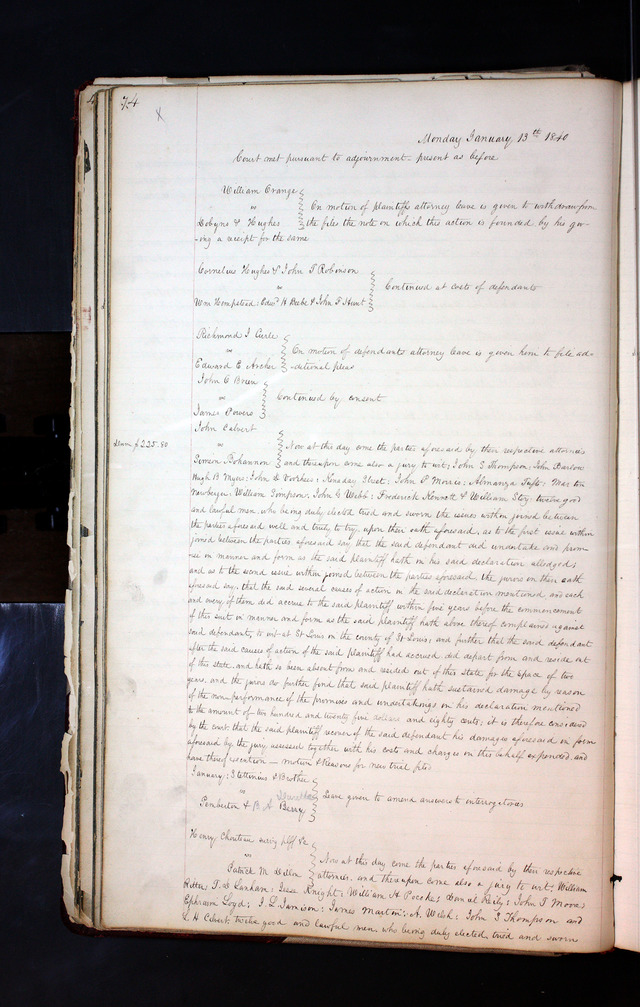 74
Monday January 13th 1840
Court met pursuant to adjournment - present as before
William Orange
vs
On motion of plaintiffs attorney leave is given to withdraw from
Hughes the files the note on which this action is founded by his giv-
-ing a receipt for the same
Cornelius Hughes & John T Robinson
vs Continued at costs of defendants
Wm Hempstead: Edwd H Beebe & John F Hunt
Richmond J Curle
vs On motion of defendants attorney leave is given him to file ad-
Edward E Archer -ditional pleas
John C
vs Continued by consent
James Powers
John Calvert
Damm $225.80
vs Now at this day come the parties aforesaid by their respective attornies
Simeon Bohannon and thereupon come also a jury to wit; John S Thompson: John Barlow
Hugh B Myers: John Voorhies: Street: John P Morris: Almanza
William Tompson: John G Webb: Frederick Kennett & William Stoy: twelve good
and lawful men, who being duly elected tried and sworn the issues within joined between
the parties aforesaid well and truly to try, upon their oath aforesaid, as to the first issue within
joined between the parties aforesaid say that the said defendant did undertake and prom-
ise in manner and form as the said plaintiff hath in his said declaration alledged;
and as to the second issue within joined between the parties aforesaid, the jurors on their oath
aforesaid say, that the said several causes of action in the said declaration mentioned and each
and every of them did accrue to the said plaintiff within five years before the commencement
of this suit in manner and form as the said plaintiff hath above thereof complained against
said defendant, to wit at St Louis in the county of St Louis; and further that the said defendant
after the said causes of action of the said plaintiff had accrued did depart from and reside out
of this state, and hath so been absent from and resided out of this State for the space of two
years, and the jurors do further find that said plaintiff hath sustained damage by reason
of the non performance of the promises and undertakings in his declaration mentioned
to the amount of two hundred and twenty five dollars and eighty cents; it is therefore considered
by the court that the said plaintiff recover of the said defendant his damages aforesaid in form
aforesaid by the jury assessed together with his costs and charges in this behalf expended and
have thereof execution - motion & Reasons for new trial filed
January: Stettinius & Brother
vs Leave given to amend answers to interrogatories
Pemberton & B A Berry
Henry Chouteau surviving plff &c
vs Now at this day come the parties aforesaid by their respective
Patrick M Dillon attornies, and thereupon come also a jury to wit: William
Ritter: T. D Lanham: Isaac Knight: William H Pococke: Daniel Reily: John T Moore
Ephraim Loyd: J L Jamison: James Martin: A. Welsh: John S Thompson and
H Calvert, twelve good and lawful men who being duly elected tried and sworn